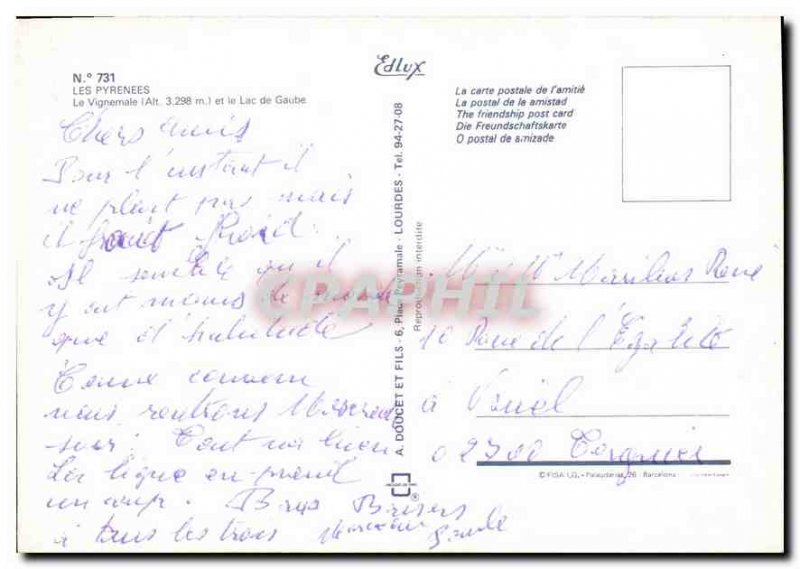 N.º 731
LES PYRENEES
Le Vignemale (Alt. 3.298 m.) et le Lac de Gaube
Chers amis
Pour l'instant il
ne pleut pas mais
il fait froid.
Il semble qu'il
y ait moins de monde
que d'habitude
comme convenu
nous rentrons Mercredi
soir. Tout va bien
La ligne en prend
un coup. Bons Baisers
à tous les trois
Edlux
A. DOUCET ET FILS - 6, Place Peyramale - LOURDES - Tel. 94-27-08
Reproduction interdite
La carte postale de l'amitié
La postal de la amistad
The friendship post card
Die Freundschaftskarte
O postal de amizade
CPAPHIL
Mr & Mme René
10 Rue de l'Égalité
à
02700 Tergnier
© FISA I.G. - Palaudarias, 26 - Barcelona